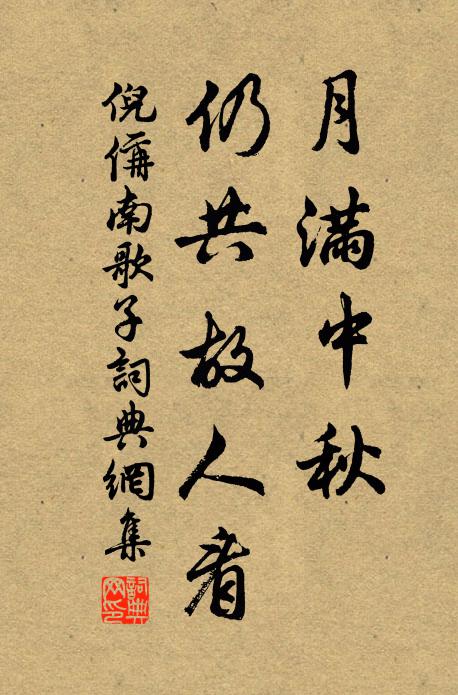 月滿中秋
仍共故人看
倪偁南歌子詞典網集
詞典网印